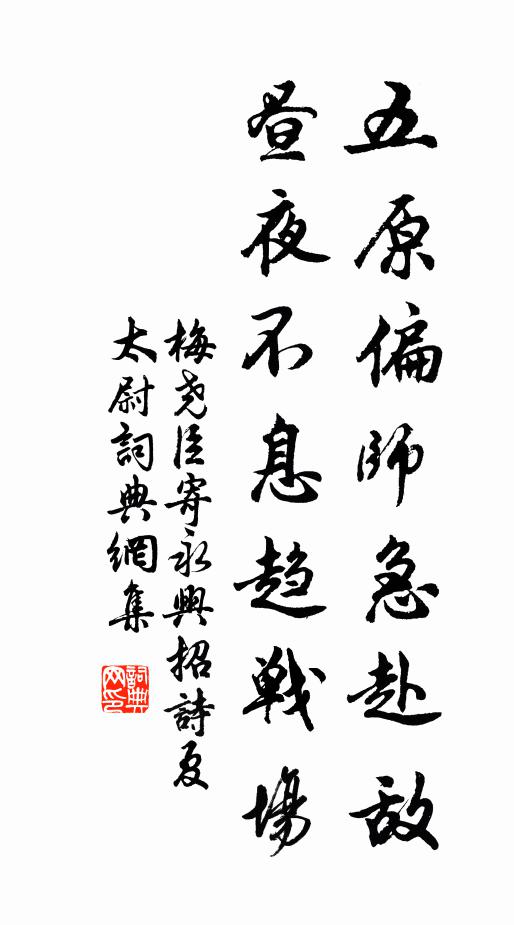 五原偏師急赴敵
昼夜不息趋戦場
梅尧臣寄永興招詩夏
太尉詞典網集
詞典
网印